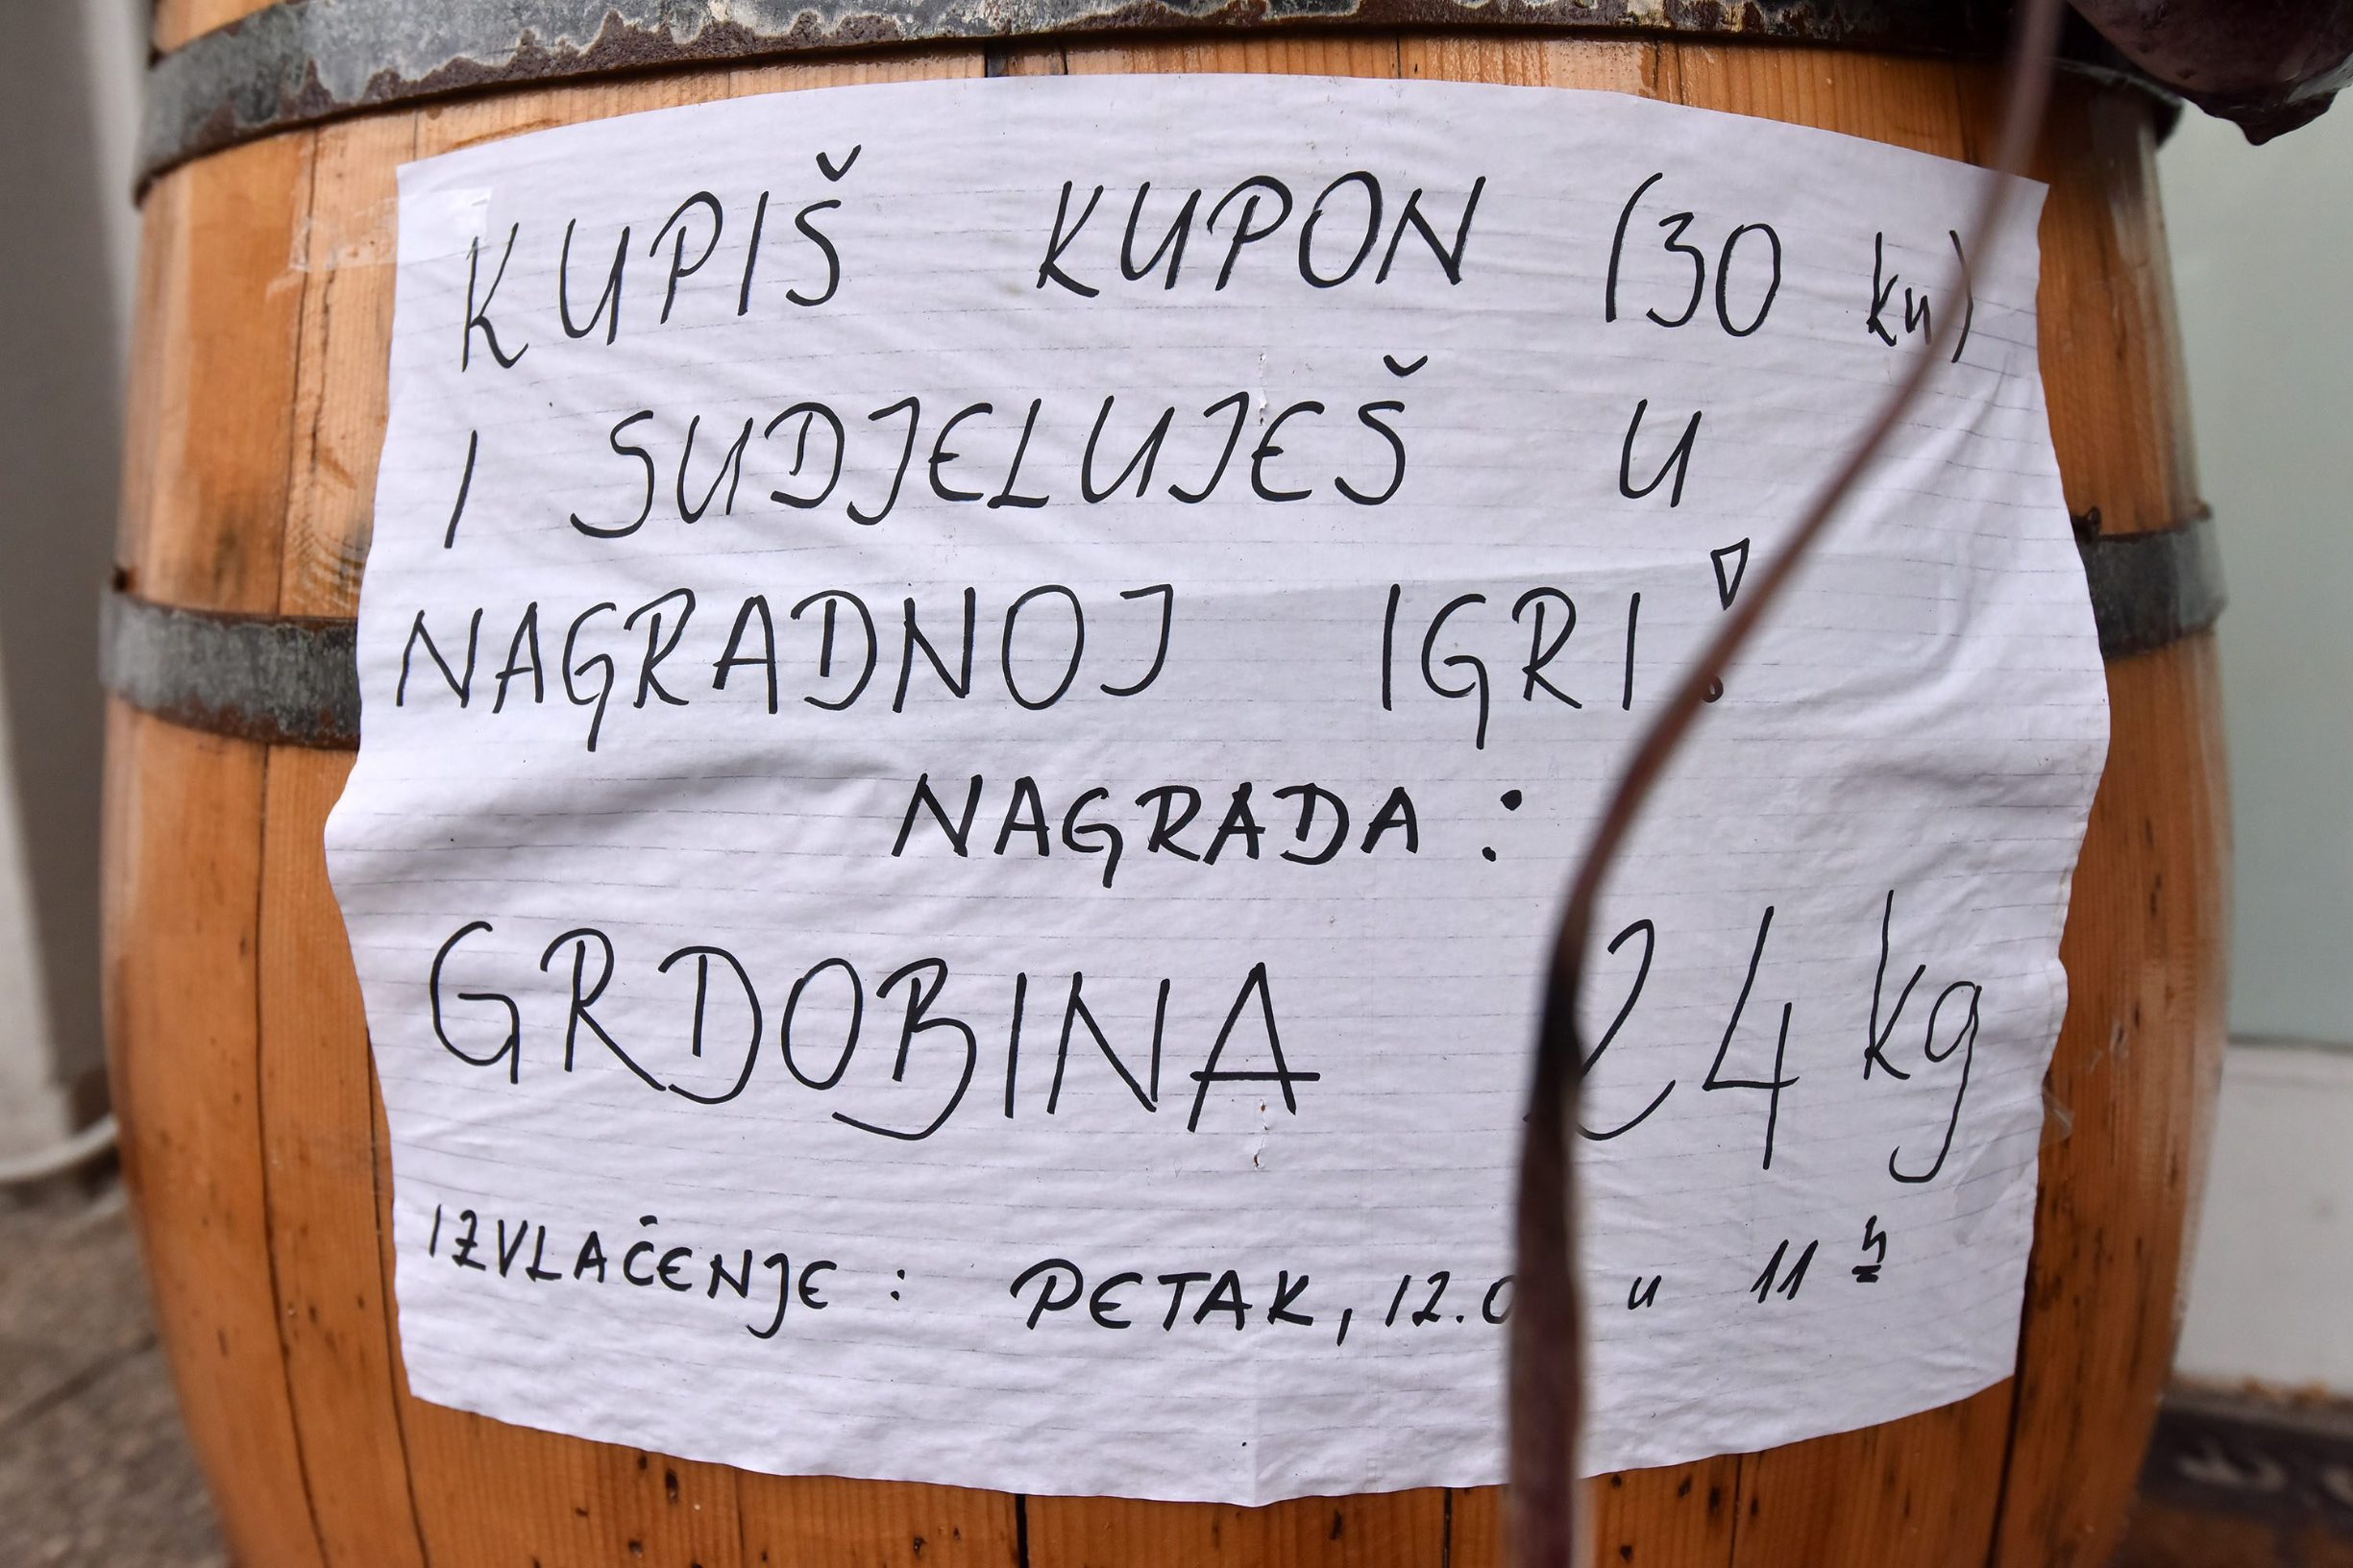 KUPIŠ KUPON (30 kn)
I SUDJELUJEŠ U
NAGRADNOJ IGRI!
NAGRADA:
GRDOBINA 24 kg
IZVLAČENJE: PETAK, u 11 h